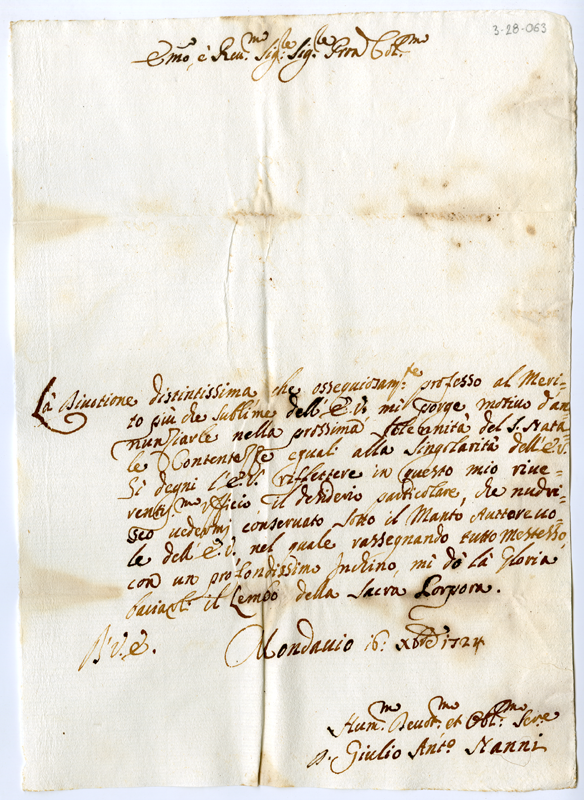 3-28-063
Emo, è Reu.mo Sig.re Sig.re Pron Col.mo
Là Diuotione distintissima, che ossequiosam.te professo al Meri-
to più che sublime dell'E.V. mi porge motiuo d'an
nunziarle nella prossima solennità del S. Nata
le Contentezze eguali alla singolarità dell'E.V.
Si degni l'E.V. riflettere in questo mio riue-
rentis.mo Officio il desiderio particolare, che nudri-
sco uedermi conseruato sotto il Manto Auttoreuo-
le dell'E.V. nel quale rassegnando tutto mestesso,
con un profondissimo Inchino, mi dò là Gloria
baciarli il Lembo della Sacra Porpora.
D. V. E.
Mondauio 16: Xbre 1724
Hum.mo Deuot.mo et Obl.mo Ser.e
D. Giulio Ant.o Nanni